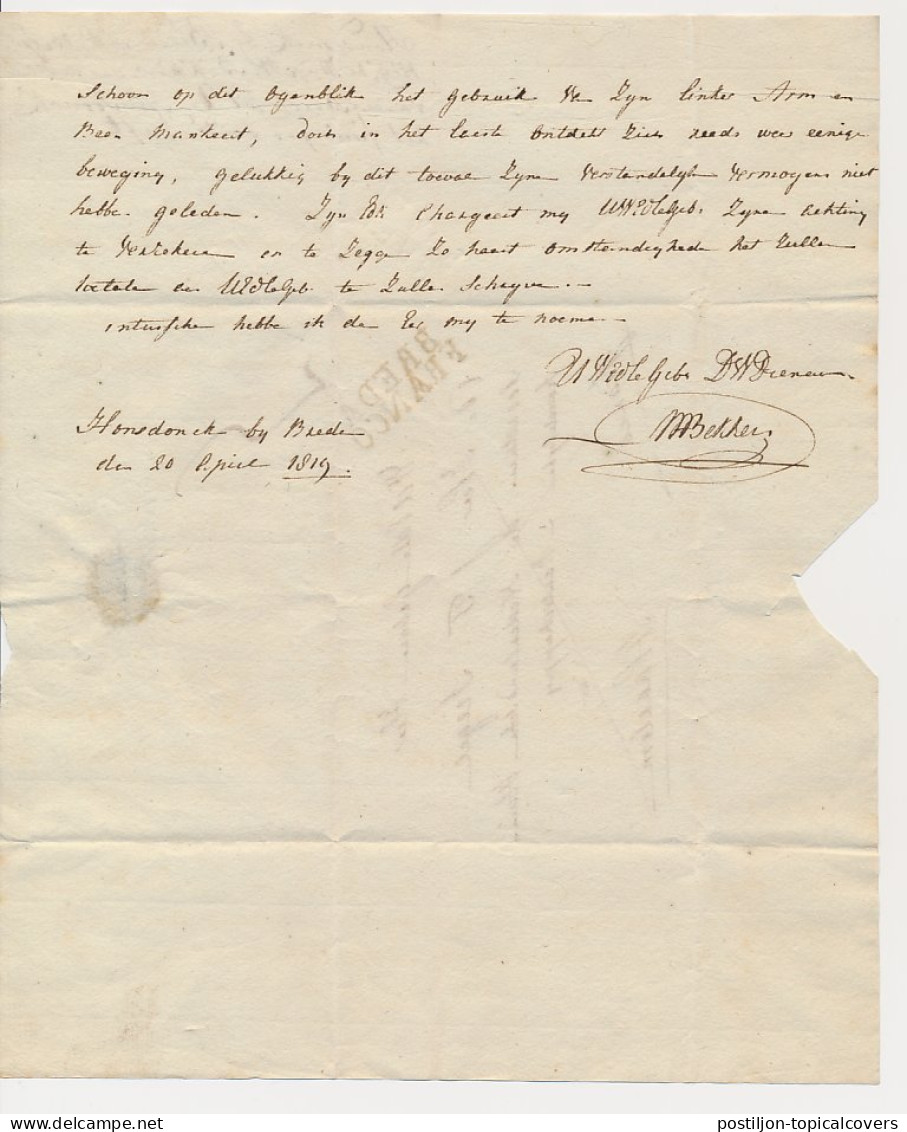 Schoon op dit ogenblik het gebruik Van Zyn linker Arm en
Been Mankeert, doch in het laaste ontdekt Zich reeds weer eenige
beweging, gelukkig by dit toeval Zyne Verstandelyke Vermogens niet
hebbe geleden. Zyn Ed: Chargeert my UWEdleGeb: Zyne achting
te Verzekere en te Zegge Zo haast omstandighede het Zulle
toelate aan UEdleGeb te Zulle Schryve.—
intussche hebbe ik de Eer my te noeme—
UWEdleGebr DWDienaar
MBekkers
Honsdonck by Breda
de 20 April 1819.
FRANCO
BREDA
postiljon-topicalcovers